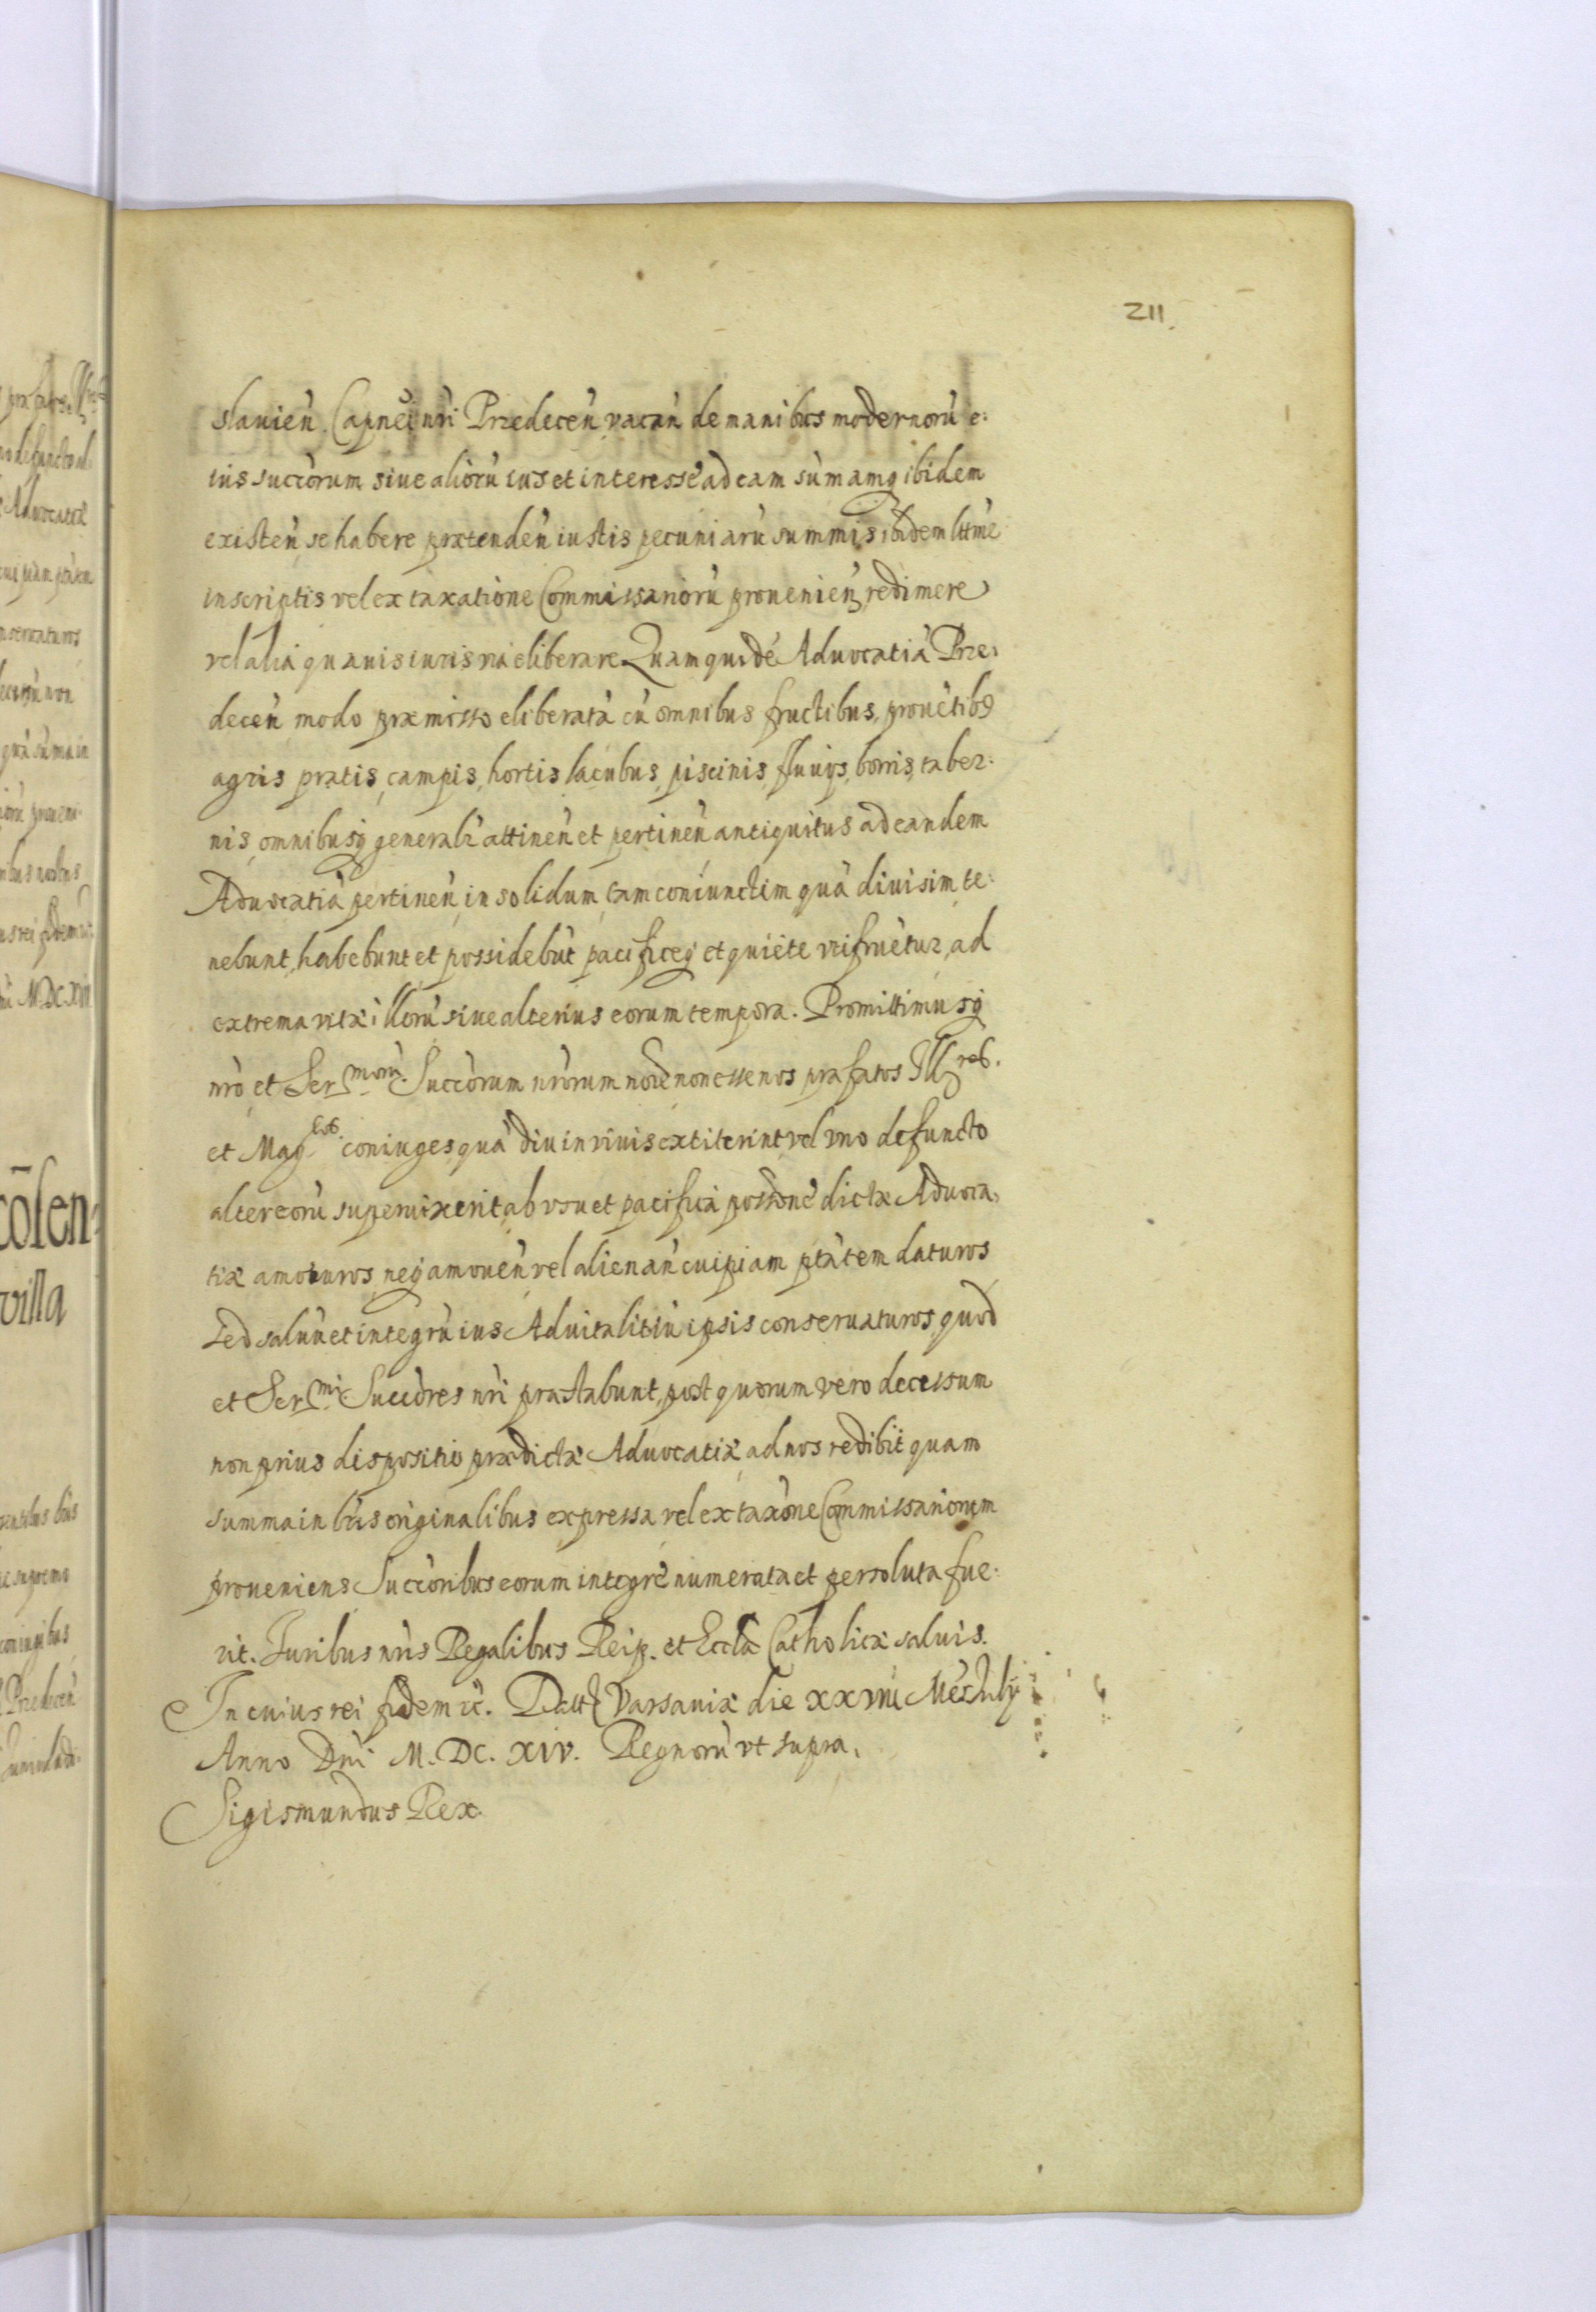 211.
slauień. Capnei nri Przedeceń vacań de manibus modernorù e:
ius succorum siue aliorù ius et interesse ad eam sùmamq ibidem
existeń se habere prætendeń iustis pecuniarù summis ibidem lttme
inscriptis vel ex taxatione Commissariorù prouenień redimere
vel alia quauis iuris via eliberare Quam quidé Aduocatià Prze:
deceń modo præmisso eliberatà cù omnibus fructibus, prouetibꝯ
agris pratis, campis, hortis lacubus, piscinis, fluuijs, borris, taber:
nis, omnibusq generalr attineń et pertineń antiquitus ad eandem
Aduocatià pertineń, in solidum, tam coniunctim quà diuisim, te:
nebunt, habebunt et possidebùt pacificeq et quiete vtifruètur, ad
extrema vitæ illorù siue alterius eorum tempora. Promittimusq
nrò et Ser.morù Succorum nrorum noie non esse nos præfatos Illres.
et Mag.cos coniuges, quà diu in viuis extiterint, vel vno defuncto
alter eorù superuixerit ab vsu et pacifica possone dictæ Aduoca:
tiæ amoturos, neq amoueń vel alienań cuipiam ptàtem daturos
sed saluù et integrù ius Aduitalitiù ipsis conseruaturos, quod
et Ser.mi Succores nri præstabunt, post quorum vero decessum
non prius dispositio prædictæ Aduocatiæ, ad nos redibit quam
summa in lris originalibus expressa vel ex taxone Commissariorum
proueniens Succoribus eorum integrè numerata et persoluta fue:
rit. Iuribus nris Regalibus Reip. et Eccla Catholicæ saluis.
In cuius rei fidem &c. Datt Varsauiæ die XXVIII Més Iulij
Anno Dni M. DC. XIV. Regnorù vt supra.
Sigismundus Rex.